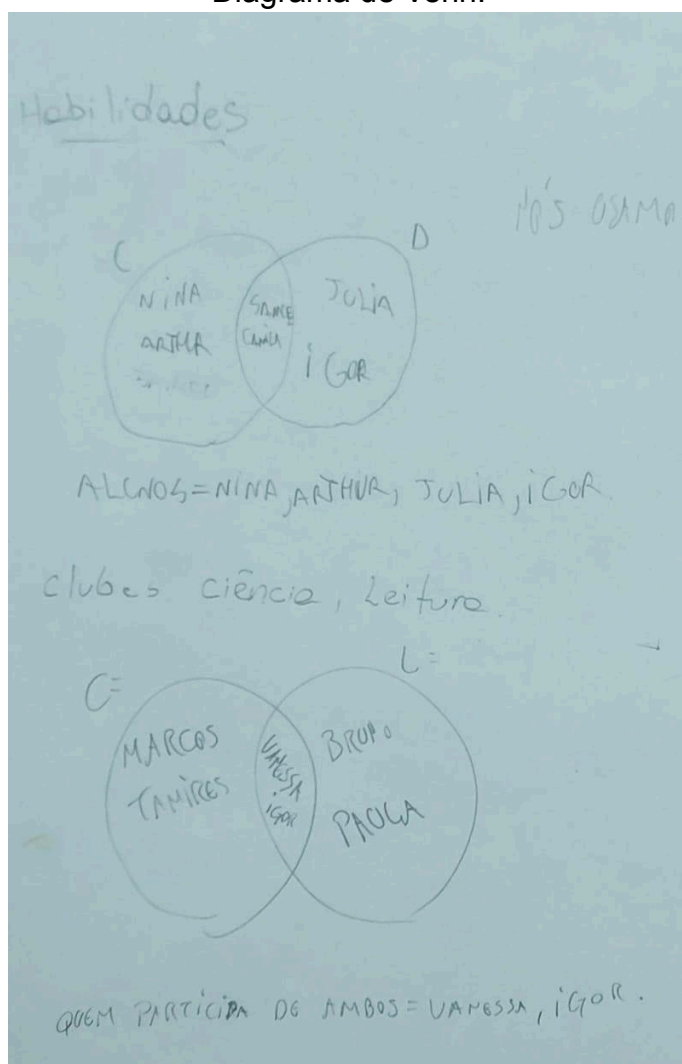 Diagrama de Venn.
Habilidades
C
D
NiNA
ARTHUR
JULiA
iGOR
ALUNOS=NiNA, ARTHUR, JULiA, iGOR
clubes ciência, Leitura
C=
L=
MARCOS
TAMiRES
VANESSA
iGOR
BRUNO
PAULA
QUEM PARTiCiPA DE AMBOS=VANESSA, iGOR.